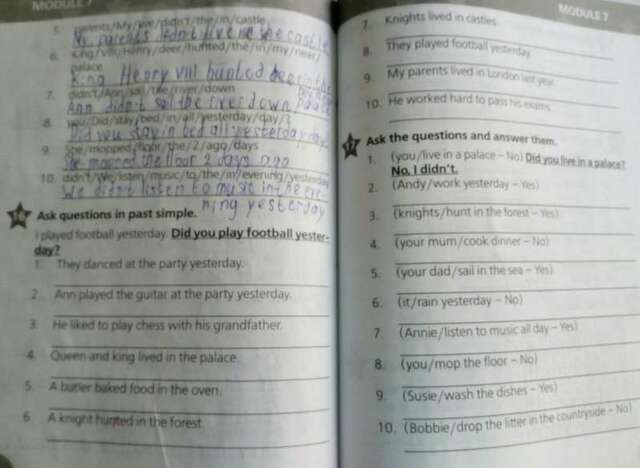 MODULE 7
5. parents/My/live/didn't/the/in/castle
My parents didn't live in the castle
6. King/VIII/Henry/deer/hunted/the/in/my/near/
palace
King Henry VIII hunted deer in the
7. didn't/Ann/sail/the/river/down
palace
Ann didn't sail the river down
8. you/Did/stay/bed/in/all/yesterday/day/?
Did you stay in bed all yesterday day
9. She/mopped/floor/the/2/ago/days
She mopped the floor 2 days ago
10. didn't/We/listen/music/to/the/in/evening/yesterday
We didn't listen to music in the eve-
ning yesterday
16 Ask questions in past simple.
I played football yesterday. Did you play football yester-
day?
1. They danced at the party yesterday.
2. Ann played the guitar at the party yesterday.
3. He liked to play chess with his grandfather.
4. Queen and king lived in the palace.
5. A butler baked food in the oven.
6. A knight hunted in the forest.
MODULE 7
7. Knights lived in castles.
8. They played football yesterday.
9. My parents lived in London last year.
10. He worked hard to pass his exams.
17 Ask the questions and answer them.
1. (you/live in a palace – No) Did you live in a palace?
No, I didn't.
2. (Andy/work yesterday – Yes)
3. (knights/hunt in the forest – Yes)
4. (your mum/cook dinner – No)
5. (your dad/sail in the sea – Yes)
6. (it/rain yesterday – No)
7. (Annie/listen to music all day – Yes)
8. (you/mop the floor – No)
9. (Susie/wash the dishes – Yes)
10. (Bobbie/drop the litter in the countryside – No)